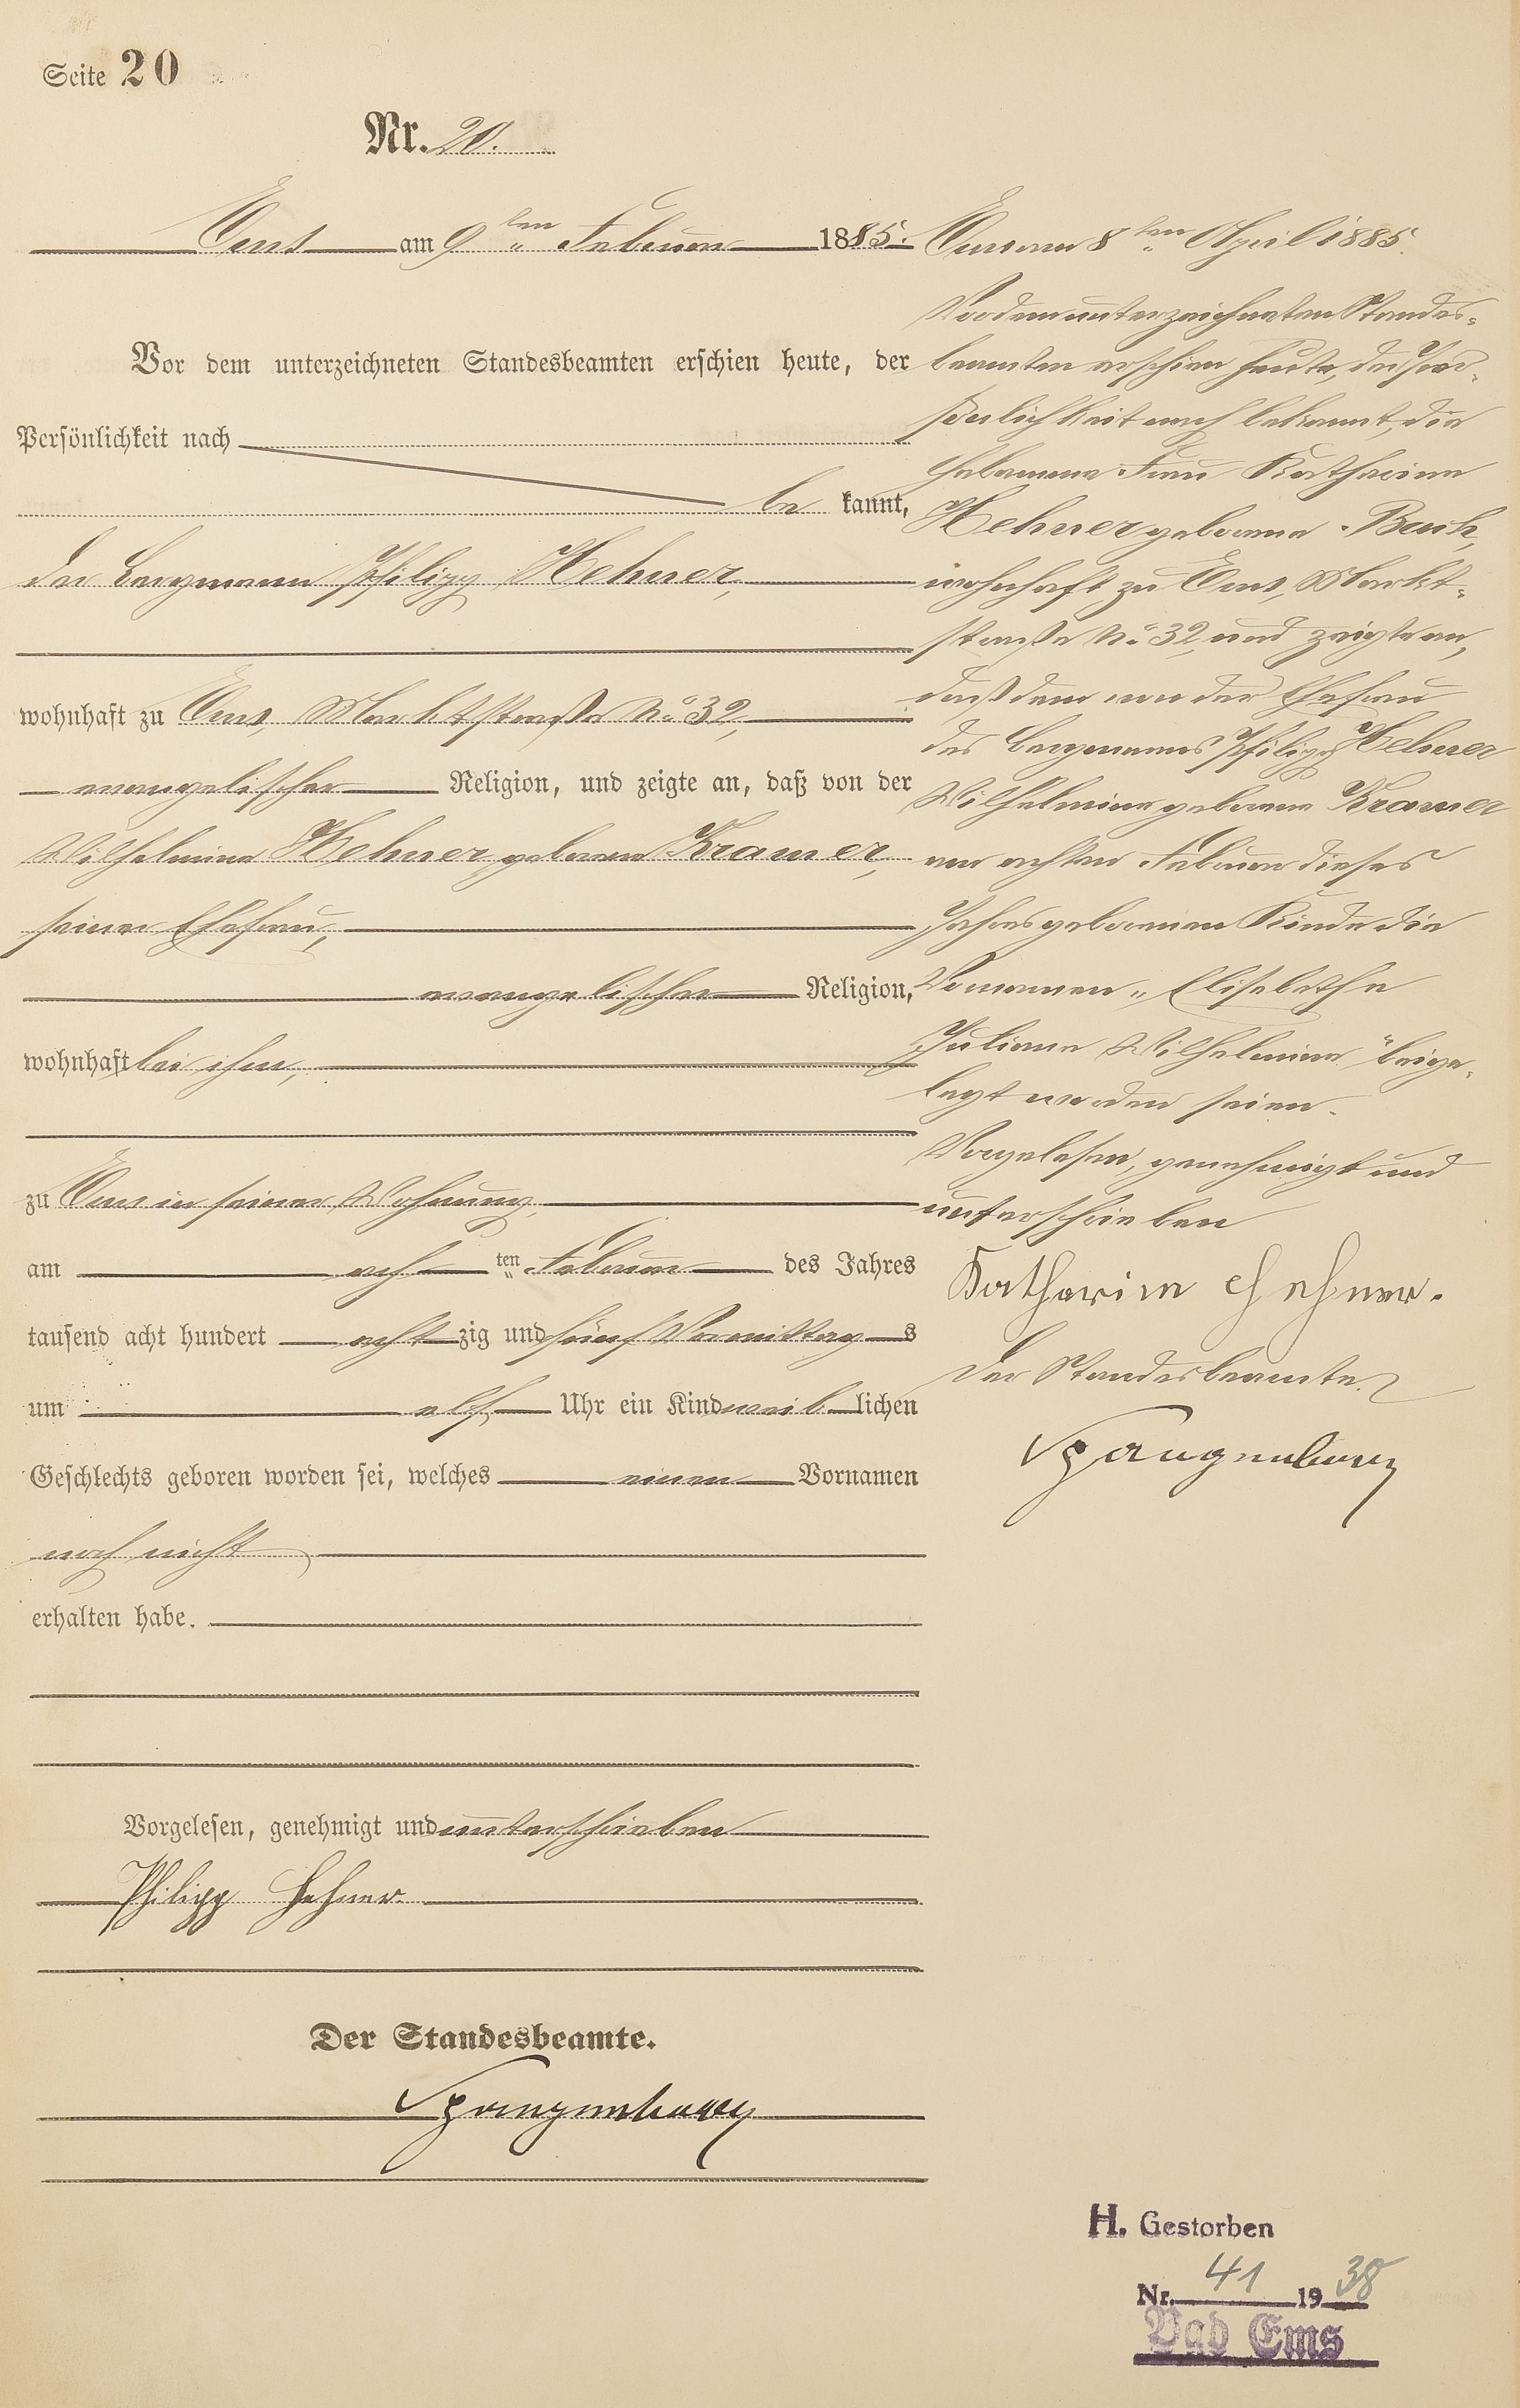 Seite 20
Nr. 20.
Ems am 9ten Februar 1885.
Vor dem unterzeichneten Standesbeamten erschien heute, der
Persönlichkeit nach
be kannt,
der Bergmann Philipp Hehner,
wohnhaft zu Ems, Marktstraße No 32,
evangelischer Religion, und zeigte an, daß von der
Wilhelmine Hehner geborene Kramer,
seiner Ehefrau,
evangelischer Religion,
wohnhaft bei ihm,
zu Ems in seiner Wohnung,
am ach ten Februar des Jahres
tausend acht hundert acht zig und fünf Vormittag s
um elf Uhr ein Kind weib lichen
Geschlechts geboren worden sei, welches einen Vornamen
noch nicht
erhalten habe.
Vorgelesen, genehmigt und unterschrieben
Philipp Hehner
Der Standesbeamte.
Spangenberg
Ems am 8ten April 1885.
Vor dem unterzeichneten Standes=
beamten erschien heute, der Per=
sönlichkeit nach bekannt, die
Hebamme Frau Katharine
Hehner geborene Bach,
wohnhaft zu Ems, Markt=
straße No 32, und zeigte an,
daß dem von der Ehefrau
des Bergmanns Philipp Hehner
Wilhelmine geborene Kramer
am achten Februar dieses
Jahres geborenen Kinde die
Vornamen „Elisabethe
Juliane Wilhelmine" beige=
legt worden seien.
Vorgelesen, genehmigt und
unterschrieben
Katharine Hehner.
Der Standesbeamte
Spangenberg
H. Gestorben
Nr. 41 1938
Bad Ems